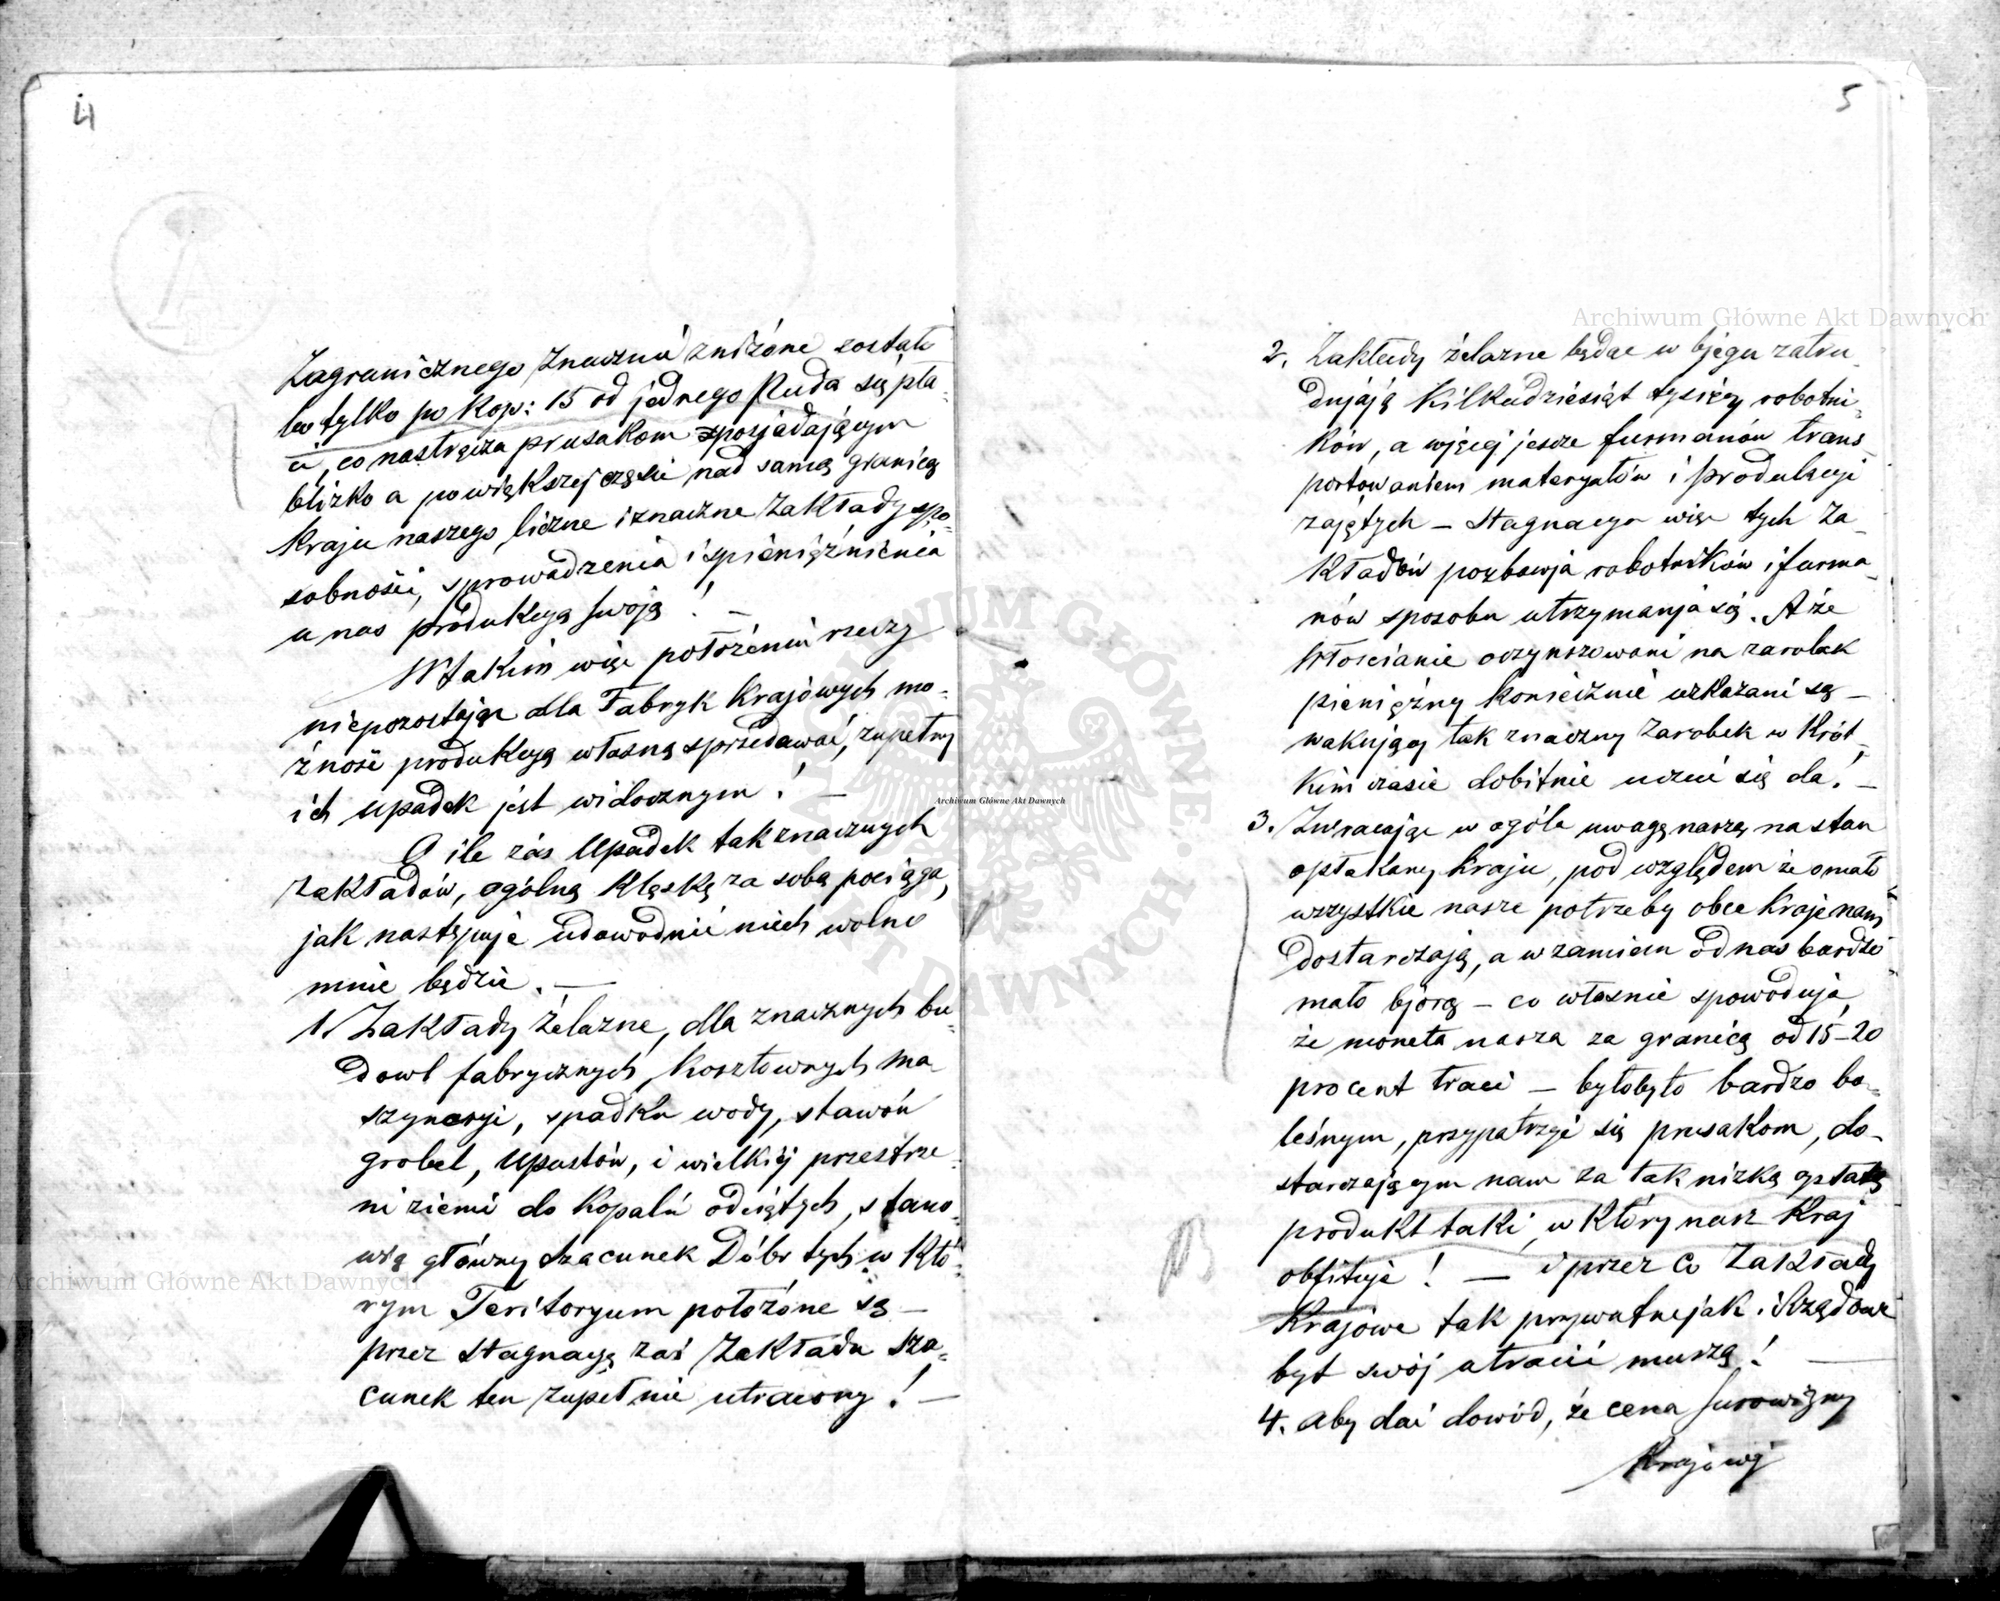 4
Zagranicznego znacznie zniżone zostało
bo tylko po kop: 15 od jednego Puda się pła-
ci, co nastręcza prusakom posiadającym
blizko a powiększej części nad samą granicą
Kraju naszego, liczne i znaczne Zakłady spo-
sobności, sprowadzenia i spieniężnienia
u nas produkcyą swoją! —
W takim więc położeniu rzeczy
niepozostając dla Fabryk Krajowych mo-
żność produkcyą własną sprzedawać, zupełny
ich upadek jest widocznym! —
O ile zaś Upadek tak znacznych
Zakładów, ogólną klęskę za sobą pociąga,
jak następuje udowodnić niech wolno
mnie będzie. —
1. Zakłady Żelazne, dla znacznych bu-
dowl fabrycznych, kosztownych ma-
szyneryi, spadku wody, stawów
grobel, Upustów, i wielkiej przestrze-
ni ziemi do Kopalń odciętych, stano-
wią główny Szacunek Dóbr tych w Któ-
rym Teritoryum położone są —
przez Stagnacyą zaś Zakładu Sza-
cunek ten zupełnie utracony! —
5
2. Zakłady żelazne będac w bjegu zatru-
dnjają Kilkadziesiąt tysięcy robotni-
ków, a więcej jescze furmanów trans-
portowaniem materyałów i produkcyi
zajętych — Stagnacya więc tych Za-
kładów pozbawja robotników i furma-
nów sposobu utrzymanja się. A że
Włościanie oczynszowani na zarobek
pieniężny koniecznie wskazani są —
wakujący tak znaczny Zarobek w krót-
kim czasie dobitnie uczuć się da! —
3. Zwracając w ogóle uwagę naszą na stan
opłakany kraju, pod względem że omało
wszystkie nasze potrzeby obce Kraje nam
dostarczają, a wzamian od nas bardzo
mało bjorą — co własnie spowoduja,
że moneta nasza za granicą od 15–20
procent traci — byłobyto bardzo bo-
leśnym, przypatrzyć się prusakom, do-
starczającym nam za tak nizką opłatą
produkt taki, w Który nasz Kraj
obfituje! — i przez co Zakłady
Krajowe tak prywatne jak i Rządowe
byt swój utracić muszą! —
4. Aby dać dowód, że cena Surowizny
Krajowej
Archiwum Główne Akt Dawnych
Archiwum Główne Akt Dawnych
Archiwum Główne Akt Dawnych
ARCHIWUM GŁÓWNE AKT DAWNYCH